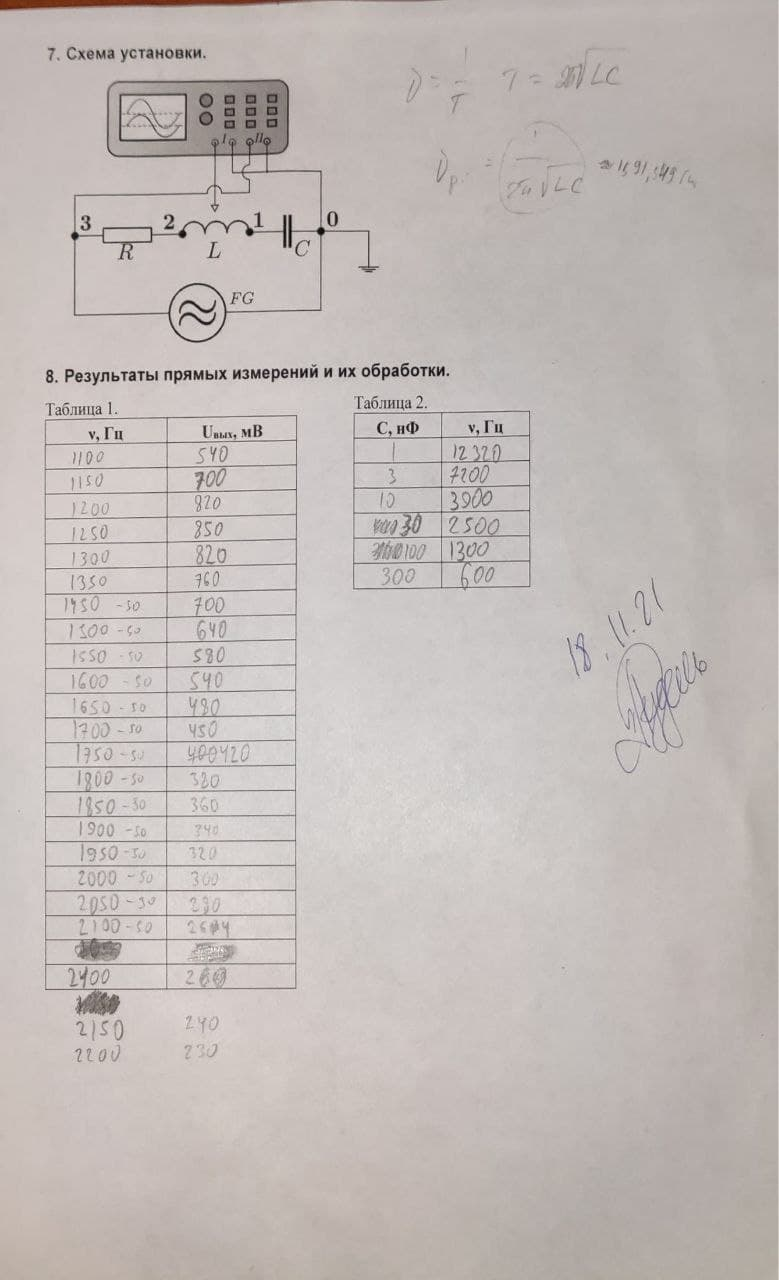 7. Схема установки.
ν = 1/T T = 2π√LC
ν р. = 1/2π√LC ≈ 1591,549 Гц
I II
3 2 1 0
R L C
FG
8. Результаты прямых измерений и их обработки.
Таблица 1.
ν, Гц Uвых, мВ
1100 540
1150 700
1200 820
1250 850
1300 820
1350 760
1450 -50 700
1500 -50 640
1550 -50 580
1600 -50 540
1650 -50 490
1700 -50 450
1750 -50 400 420
1800 -50 380
1850 -50 360
1900 -50 340
1950 -50 320
2000 -50 300
2050 -50 280
2100 -50
2400
2150 240
2200 230
Таблица 2.
C, нФ ν, Гц
1 12320
3 7200
10 3900
30 2500
100 1300
300 600
18.11.21